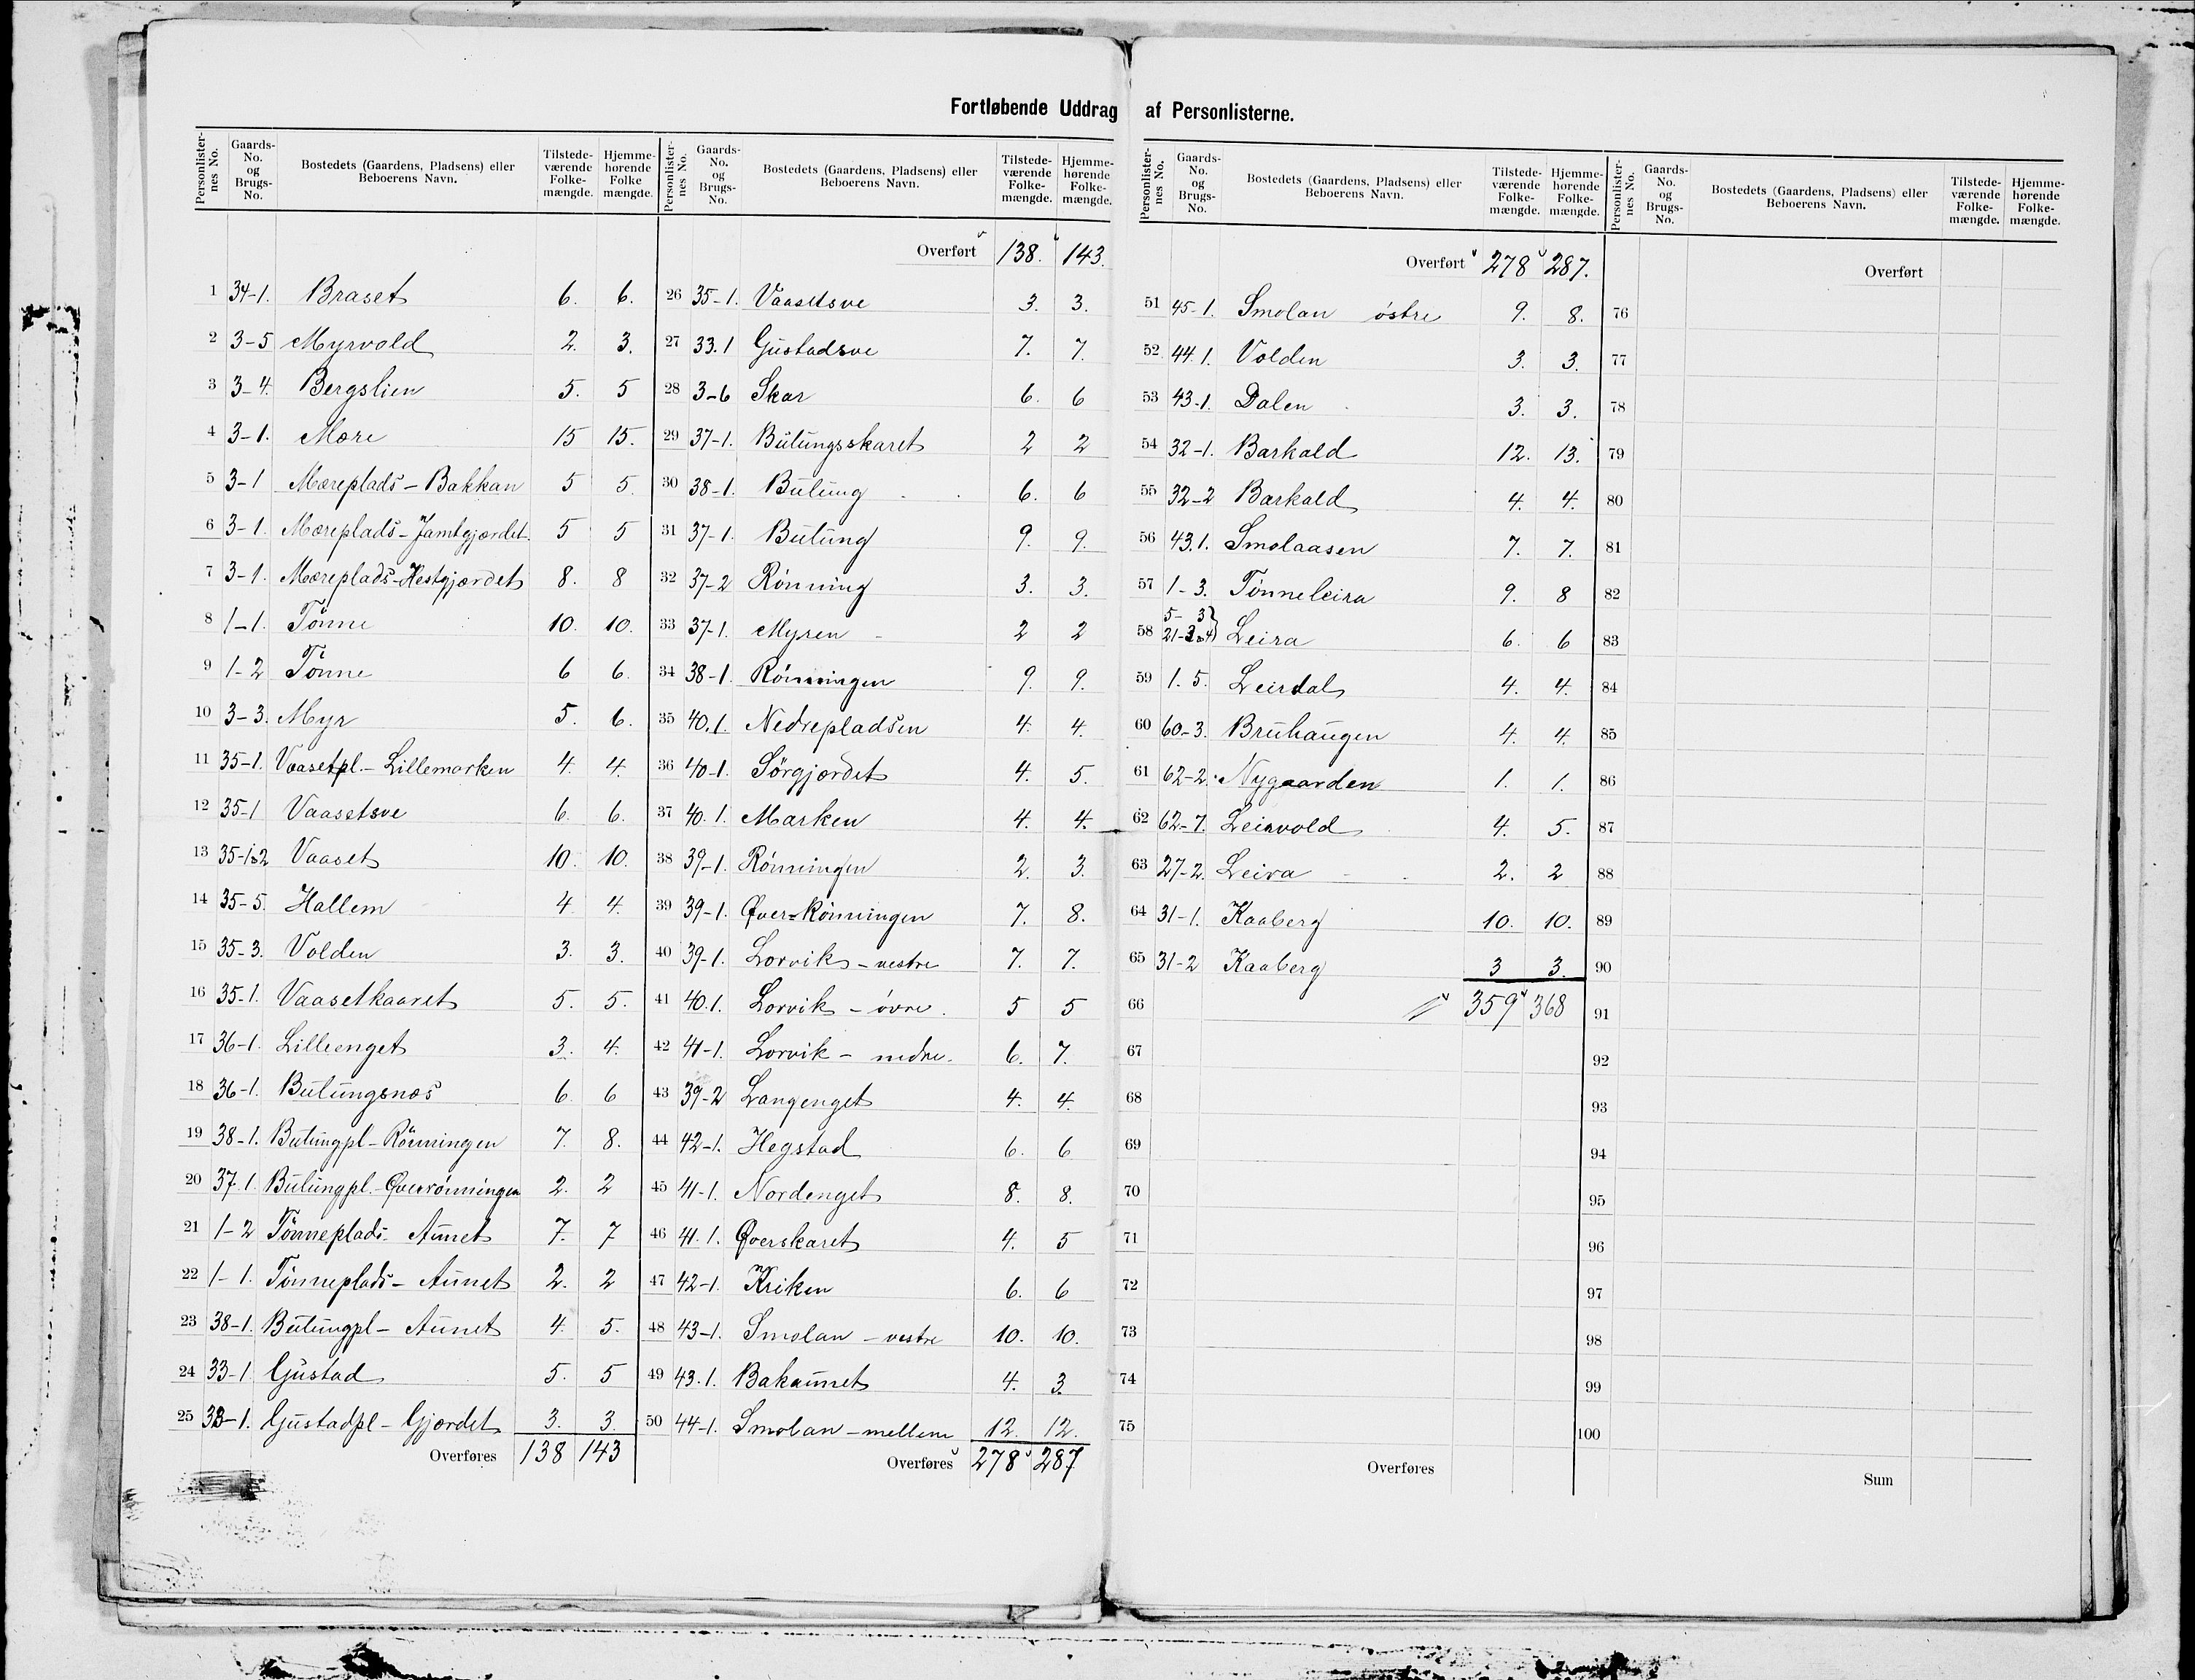 Fortløbende Uddrag af Personlisterne.
Personlisternes No. Gaards-No. og Brugs-No. Bostedets (Gaardens, Pladsens) eller Beboerens Navn. Tilstedeværende Folkemængde. Hjemmehørende Folkemængde.
1 34-1. Braset 6. 6.
2 3-5 Myrvold 2. 3.
3 3-4. Bergslien 5. 5
4 3-1. Mære 15 15.
5 3-1 Mæreplads - Bakkan 5 5.
6 3-1. Mæreplads - Jamtgjærdet 5 5
7 3-1. Mæreplads - Hestgjærdet 8. 8
8 1-1. Tønne 10. 10.
9 1-2 Tønne 6 6.
10 3-3. Myr 5. 6.
11 35-1. Vaasetpl. - Lillemarken 4. 4.
12 35-1 Vaasetsve 6. 6.
13 35-1&2 Vaaset 10. 10.
14 35-5. Hallem 4 4.
15 35-3. Volden 3. 3.
16 35-1. Vaasetkaaret 5. 5.
17 36-1. Lilleenget 3. 4.
18 36-1. Bulungsnæs 6. 6
19 38-1. Bulungpl - Rønningen 7. 8.
20 37.1. Bulungpl. - Øverrønningen 2. 2
21 1-2 Tønneplads - Aunet 7. 7
22 1-1. Tønneplads - Aunet 2. 2
23 38-1. Bulungpl - Aunet 4. 5.
24 33-1 Gustad 5. 5
25 33-1. Gustadpl - Gjærdet 3. 3.
Overføres 138 143
Personlisternes No. Gaards-No. og Brugs-No. Bostedets (Gaardens, Pladsens) eller Beboerens Navn. Tilstedeværende Folkemængde. Hjemmehørende Folkemængde.
Overført 138. 143.
26 35-1. Vaasetsve 3. 3.
27 33.1 Gustadsve 7. 7.
28 3-6 Skar 6. 6
29 37-1. Bulungsskaret 2 2
30 38-1. Bulung 6. 6
31 37-1. Bulung 9. 9.
32 37-2 Rønning 3. 3.
33 37-1. Myren 2 2
34 38-1. Rønningen 9. 9.
35 40.1. Nedrepladsen 4. 4.
36 40-1. Sørgjærdet 4. 5.
37 40.1. Marken 4. 4.
38 39-1. Rønningen 2. 3.
39 39-1. Øver-Rønningen 7. 8.
40 39-1. Lorvik - vestre 7. 7.
41 40.1. Lorvik - øvre 5 5
42 41-1. Lorvik - nedre 6. 7.
43 39-2 Langenget 4. 4.
44 42-1. Hegstad 6. 6
45 41-1. Nordenget 8. 8.
46 41.1. Øverskaret 4. 5
47 42-1. Kriken 6. 6
48 43-1. Smolan - vestre 10. 10.
49 43.1. Bakaunet 4. 3.
50 44-1. Smolan - mellem 12. 12.
Overføres 278 287
Personlisternes No. Gaards-No. og Brugs-No. Bostedets (Gaardens, Pladsens) eller Beboerens Navn. Tilstedeværende Folkemængde. Hjemmehørende Folkemængde.
Overført 278 287.
51 45-1. Smolan østre 9. 8.
52 44.1. Volden 3. 3.
53 43-1. Dalen 3. 3.
54 32-1. Barkald 12. 13.
55 32-2 Barkald 4. 4.
56 43.1. Smolaasen 7. 7.
57 1-3. Tønneleira 9. 8
5-3
58 21-3&4 Leira 6. 6
59 1.5. Leirdal 4. 4.
60 60-3. Bruhaugen 4. 4.
61 62-2. Nygaarden 1. 1.
62 62-7. Leirvold 4. 5.
63 27-2. Leira 2. 2
64 31-1. Kaaberg 10. 10.
65 31-2 Kaaberg 3 3.
66 359 368
67
68
69
70
71
72
73
74
75
Overføres
Personlisternes No. Gaards-No. og Brugs-No. Bostedets (Gaardens, Pladsens) eller Beboerens Navn. Tilstedeværende Folkemængde. Hjemmehørende Folkemængde.
Overført
76
77
78
79
80
81
82
83
84
85
86
87
88
89
90
91
92
93
94
95
96
97
98
99
100
Sum